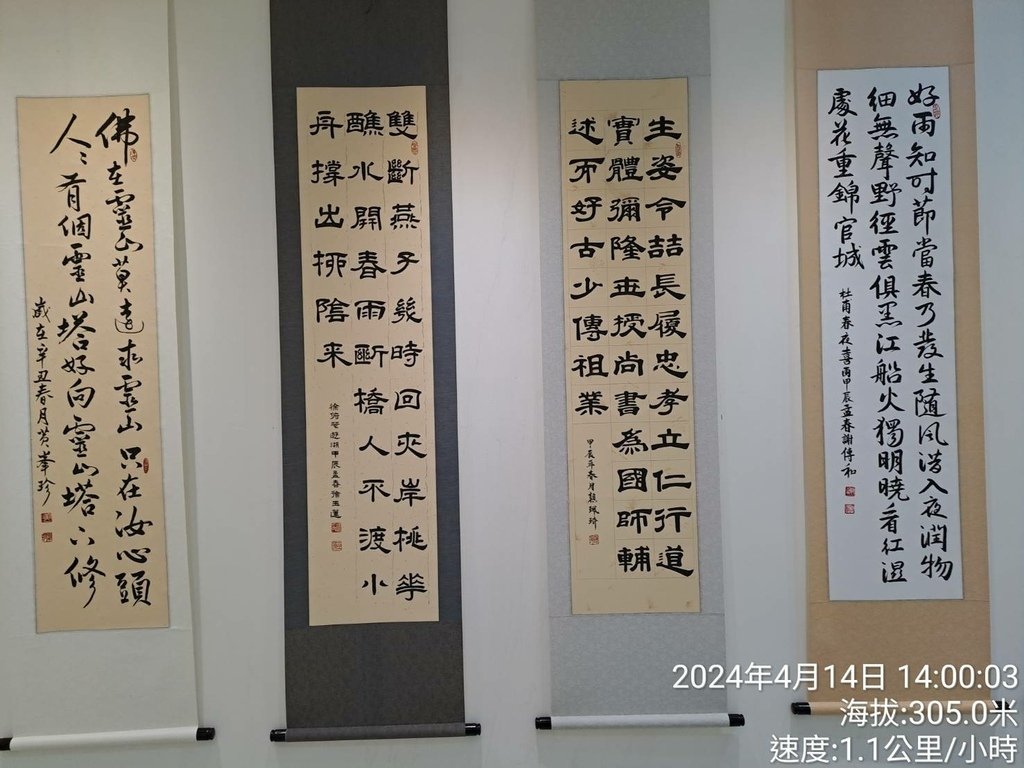 好雨知時節當春乃發生隨風潛入夜潤物
細無聲野徑雲俱黑江船火獨明曉看紅溼
處花重錦官城
杜甫春夜喜雨甲辰孟春謝傳和
生姿令喆長履忠孝立仁行道
實體彌隆世授尚書為國師輔
述而好古少傳祖業
甲辰年春月熊珮琦
雙飛燕子幾時回夾岸桃華
蘸水開春雨斷橋人不渡小
舟撐出柳陰來
徐俯春遊湖甲辰孟春徐玉蓮
佛在靈山莫遠求靈山只在汝心頭
人〻有個靈山塔好向靈山塔下修
歲在辛丑春月黃峯珍
2024年4月14日 14:00:03
海拔:305.0米
速度:1.1公里/小時